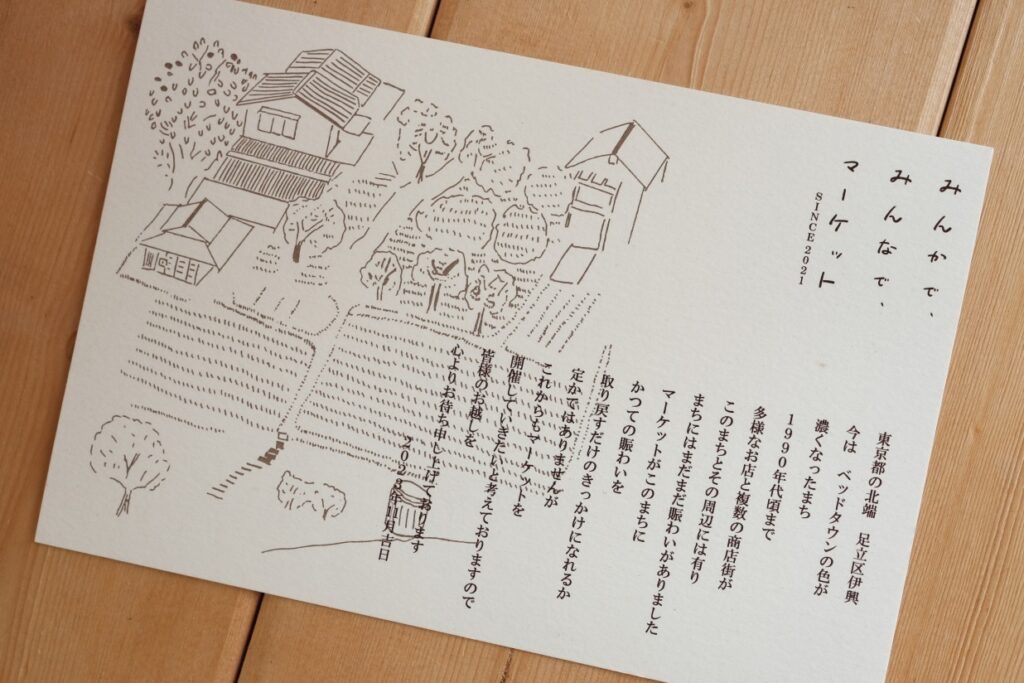 みんかで、
みんなで、
マーケット
SINCE 2021
東京都の北端　足立区伊興
今は　ベッドタウンの色が
濃くなったまち
1990年代頃まで
多様なお店と複数の商店街が
このまちとその周辺には有り
まちにはまだまだ賑わいがありました
マーケットがこのまちに
かつての賑わいを
取り戻すだけのきっかけになれるか
定かではありませんが
これからもマーケットを
開催していきたいと考えておりますので
皆様のお越しを
心よりお待ち申し上げております
2023年11月吉日